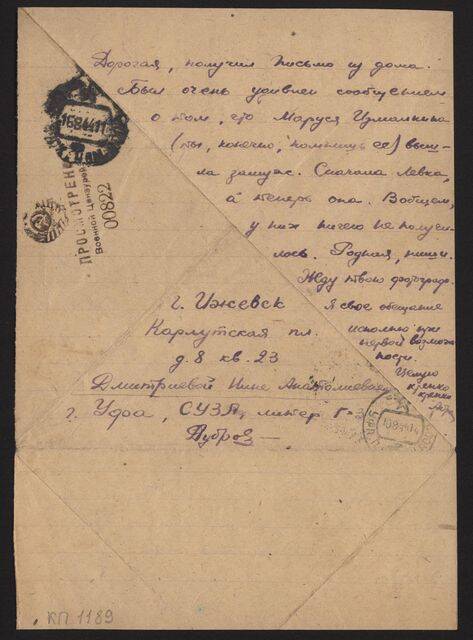 Дорогая, получил письмо из дома.
Был очень удивлен сообщением
о том, что Маруся
(ты, конечно, помнишь ее) выш-
ла замуж. Сначала Левка,
а теперь она. Вобщем,
у них ничего не получи-
лось. Родная, пиши.
Жду твою фотограф.
Я свое обещание
исполню при
первой возмож
ности.
Целую
крепко
крепко
16844
ПРОСМОТРЕНО
Военной Цензурой
00822
г. Ижевск
Карлутская пл.
д. 8 кв. 23
Дмитриевой Нине Анатолиевне
г. Уфа, СУЗА, литер Г-
Дубров
10844
КП 1189